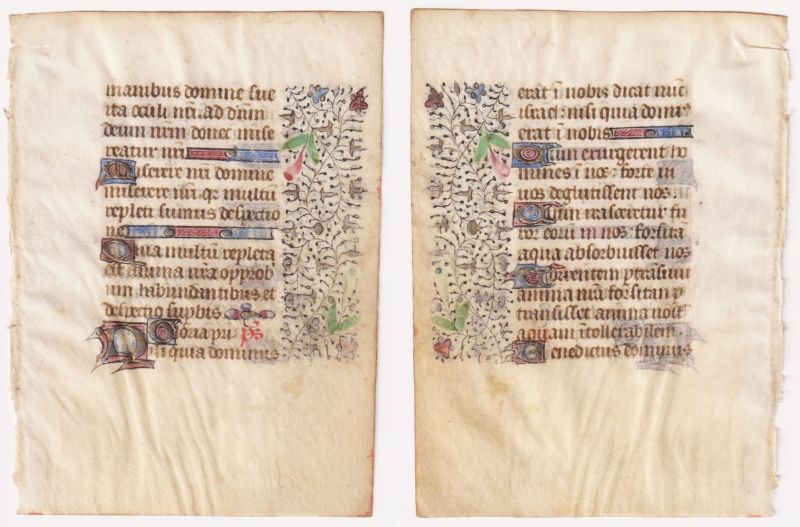 manibus domine sue
ita occuli nr̄i ad dn̄m
deum nr̄m donec mise
reatur nr̄i
Miserere nr̄i domine
miserere nr̄i qr multū
repleti sumus despectio
ne
Quia multū repleta
est anima nr̄a opprob
ium habundantibus et
despectio supbis
Gloria pr̄i ps
Nisi quia dominus
erat ī nobis dicat nūc
israel: nisi quia domi
erat ī nobis
Cum exurgerent ho
mines ī nos: forte
uos deglutissent nos
Cum irasceretur fu
ror eorū in nos forsitā
aqua absorbuisset nos
Torrentem ptrāsiuit
anima nr̄a forsitan p
transisset anima
aquam ītollerabilem
Benedictus dominus